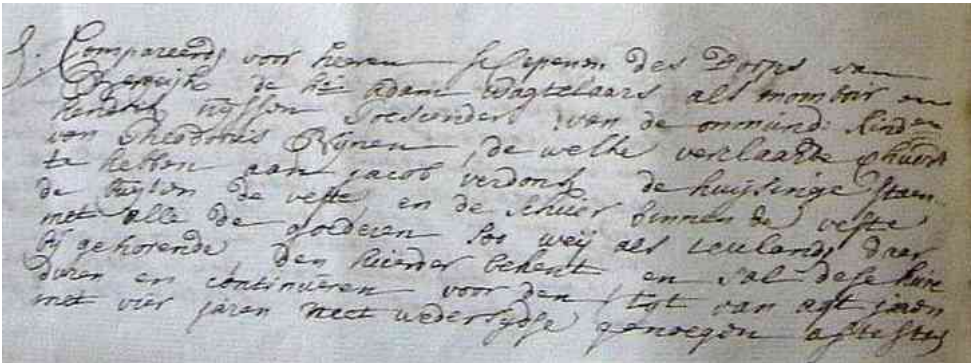 Compareerd voor heeren Schepenen des Dorps van
Bergeijk de hr adam Wagtelaars als momboir en
hendrik toesiender van de onmundi kinder
van Theodorus Rijnen, de welke verclaarde verhuert
te hebben aan jacob verdonk de huijsinge staen
de buijten de veste en de schuer binnen de veste
met alle de goederen soo weij als teulandt daer
bij gehorende den huerder bekent en sal dese huer
duren en continueren voor den tijt van agt jaren
met vier jaren met wedersydse genoegen af te